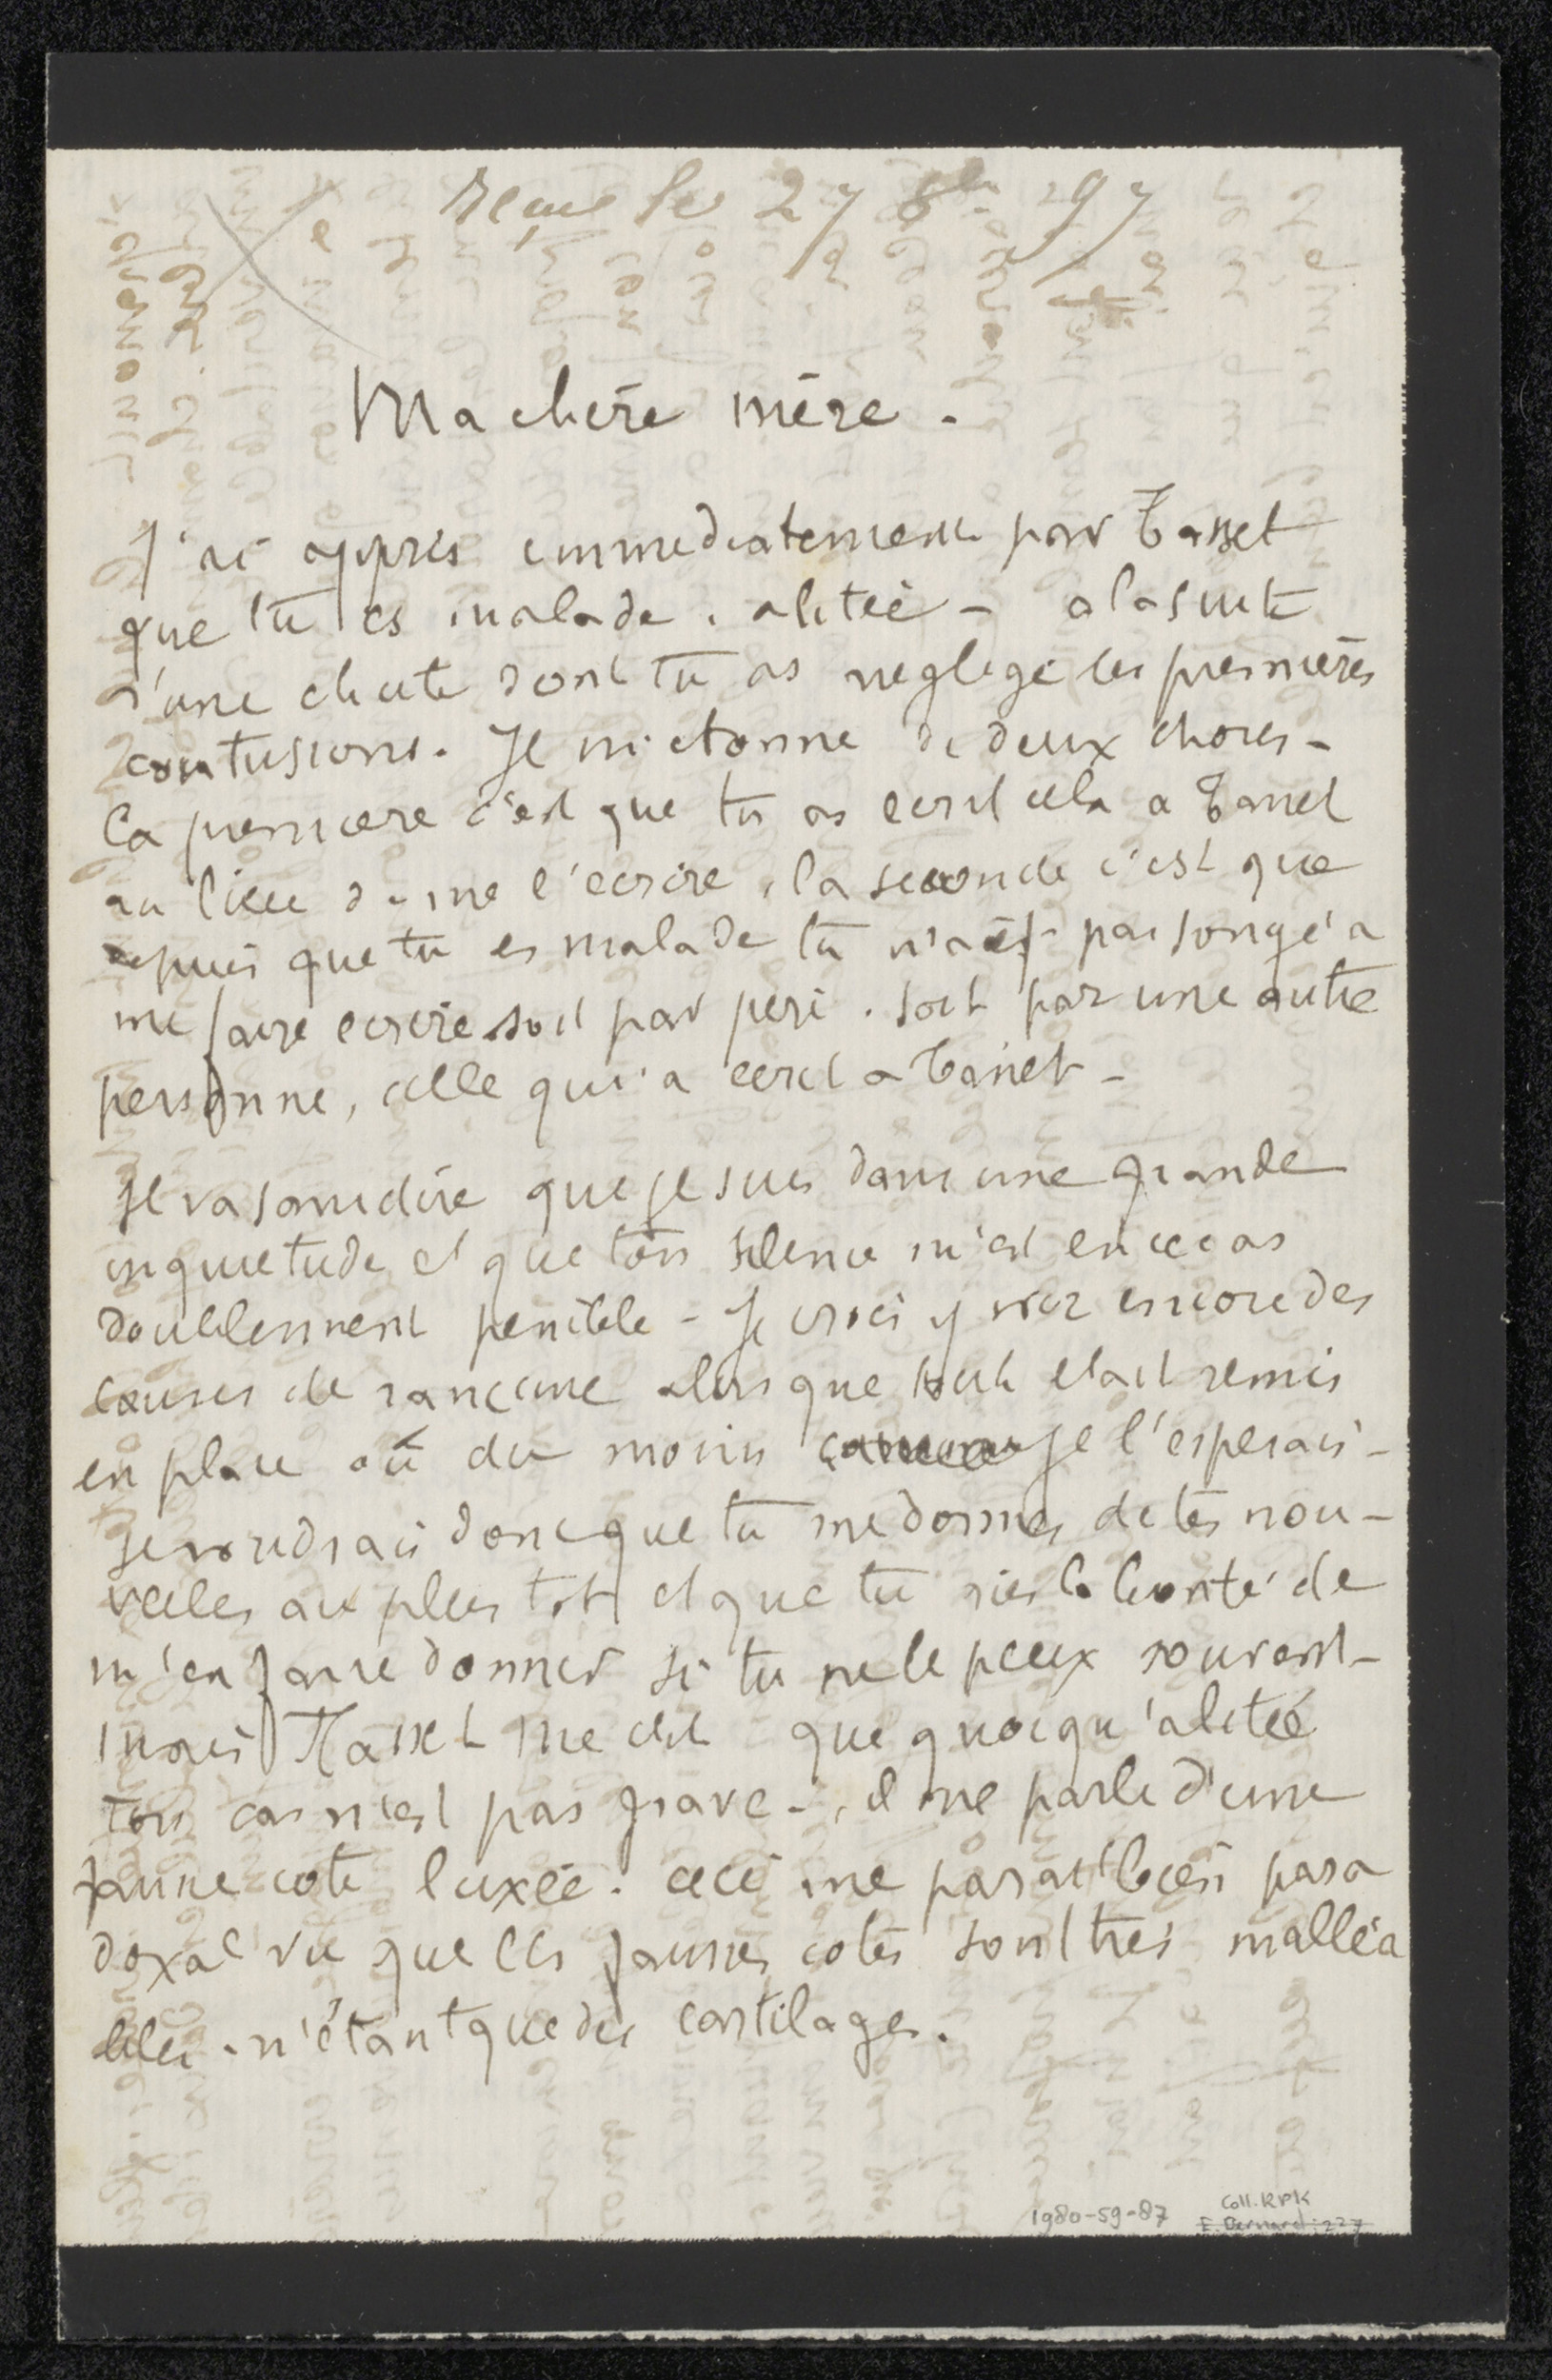 Reçue le 27 8bre 97
Ma chère mère.
J'ai appris immediatement par Tasset
que tu es malade. alitée - a la suite
d'une chute dont tu as neglegé les premières
contusions. Je m'etonne de deux choses -
la premiere c'est que tu as ecrit cela a Tasset
au lieu de me l'écrire, la seconde c'est que
depuis que tu es malade tu n'aies pas songé a
me faire ecrire soit par père. soit par une autre
personne, celle qui a ecrit a Tasset -
Il va sans dire que je suis dans une grande
inquietude et que ton silence m'est en ce cas
doublement penible - Je crois y voir encore des
causes de rancune alors que tout etait remis
en place où du moins je l'esperais -
Je voudrais donc que tu me donnes de tes nou-
velles au plus tot et que tu aies la bonté de
m'en faire donner si tu ne le peux souvent -
mais Tasset me dit que quoiqu'alitée
ton cas n'est pas grave -, il me parle d'une
fausse cote luxée. ceci me parait bien para
doxal vu que les fausses cotes sont très malléa
bles. n'étant que des cartilages.
1980-59-87
Coll. RPK
E. Bernard: 227